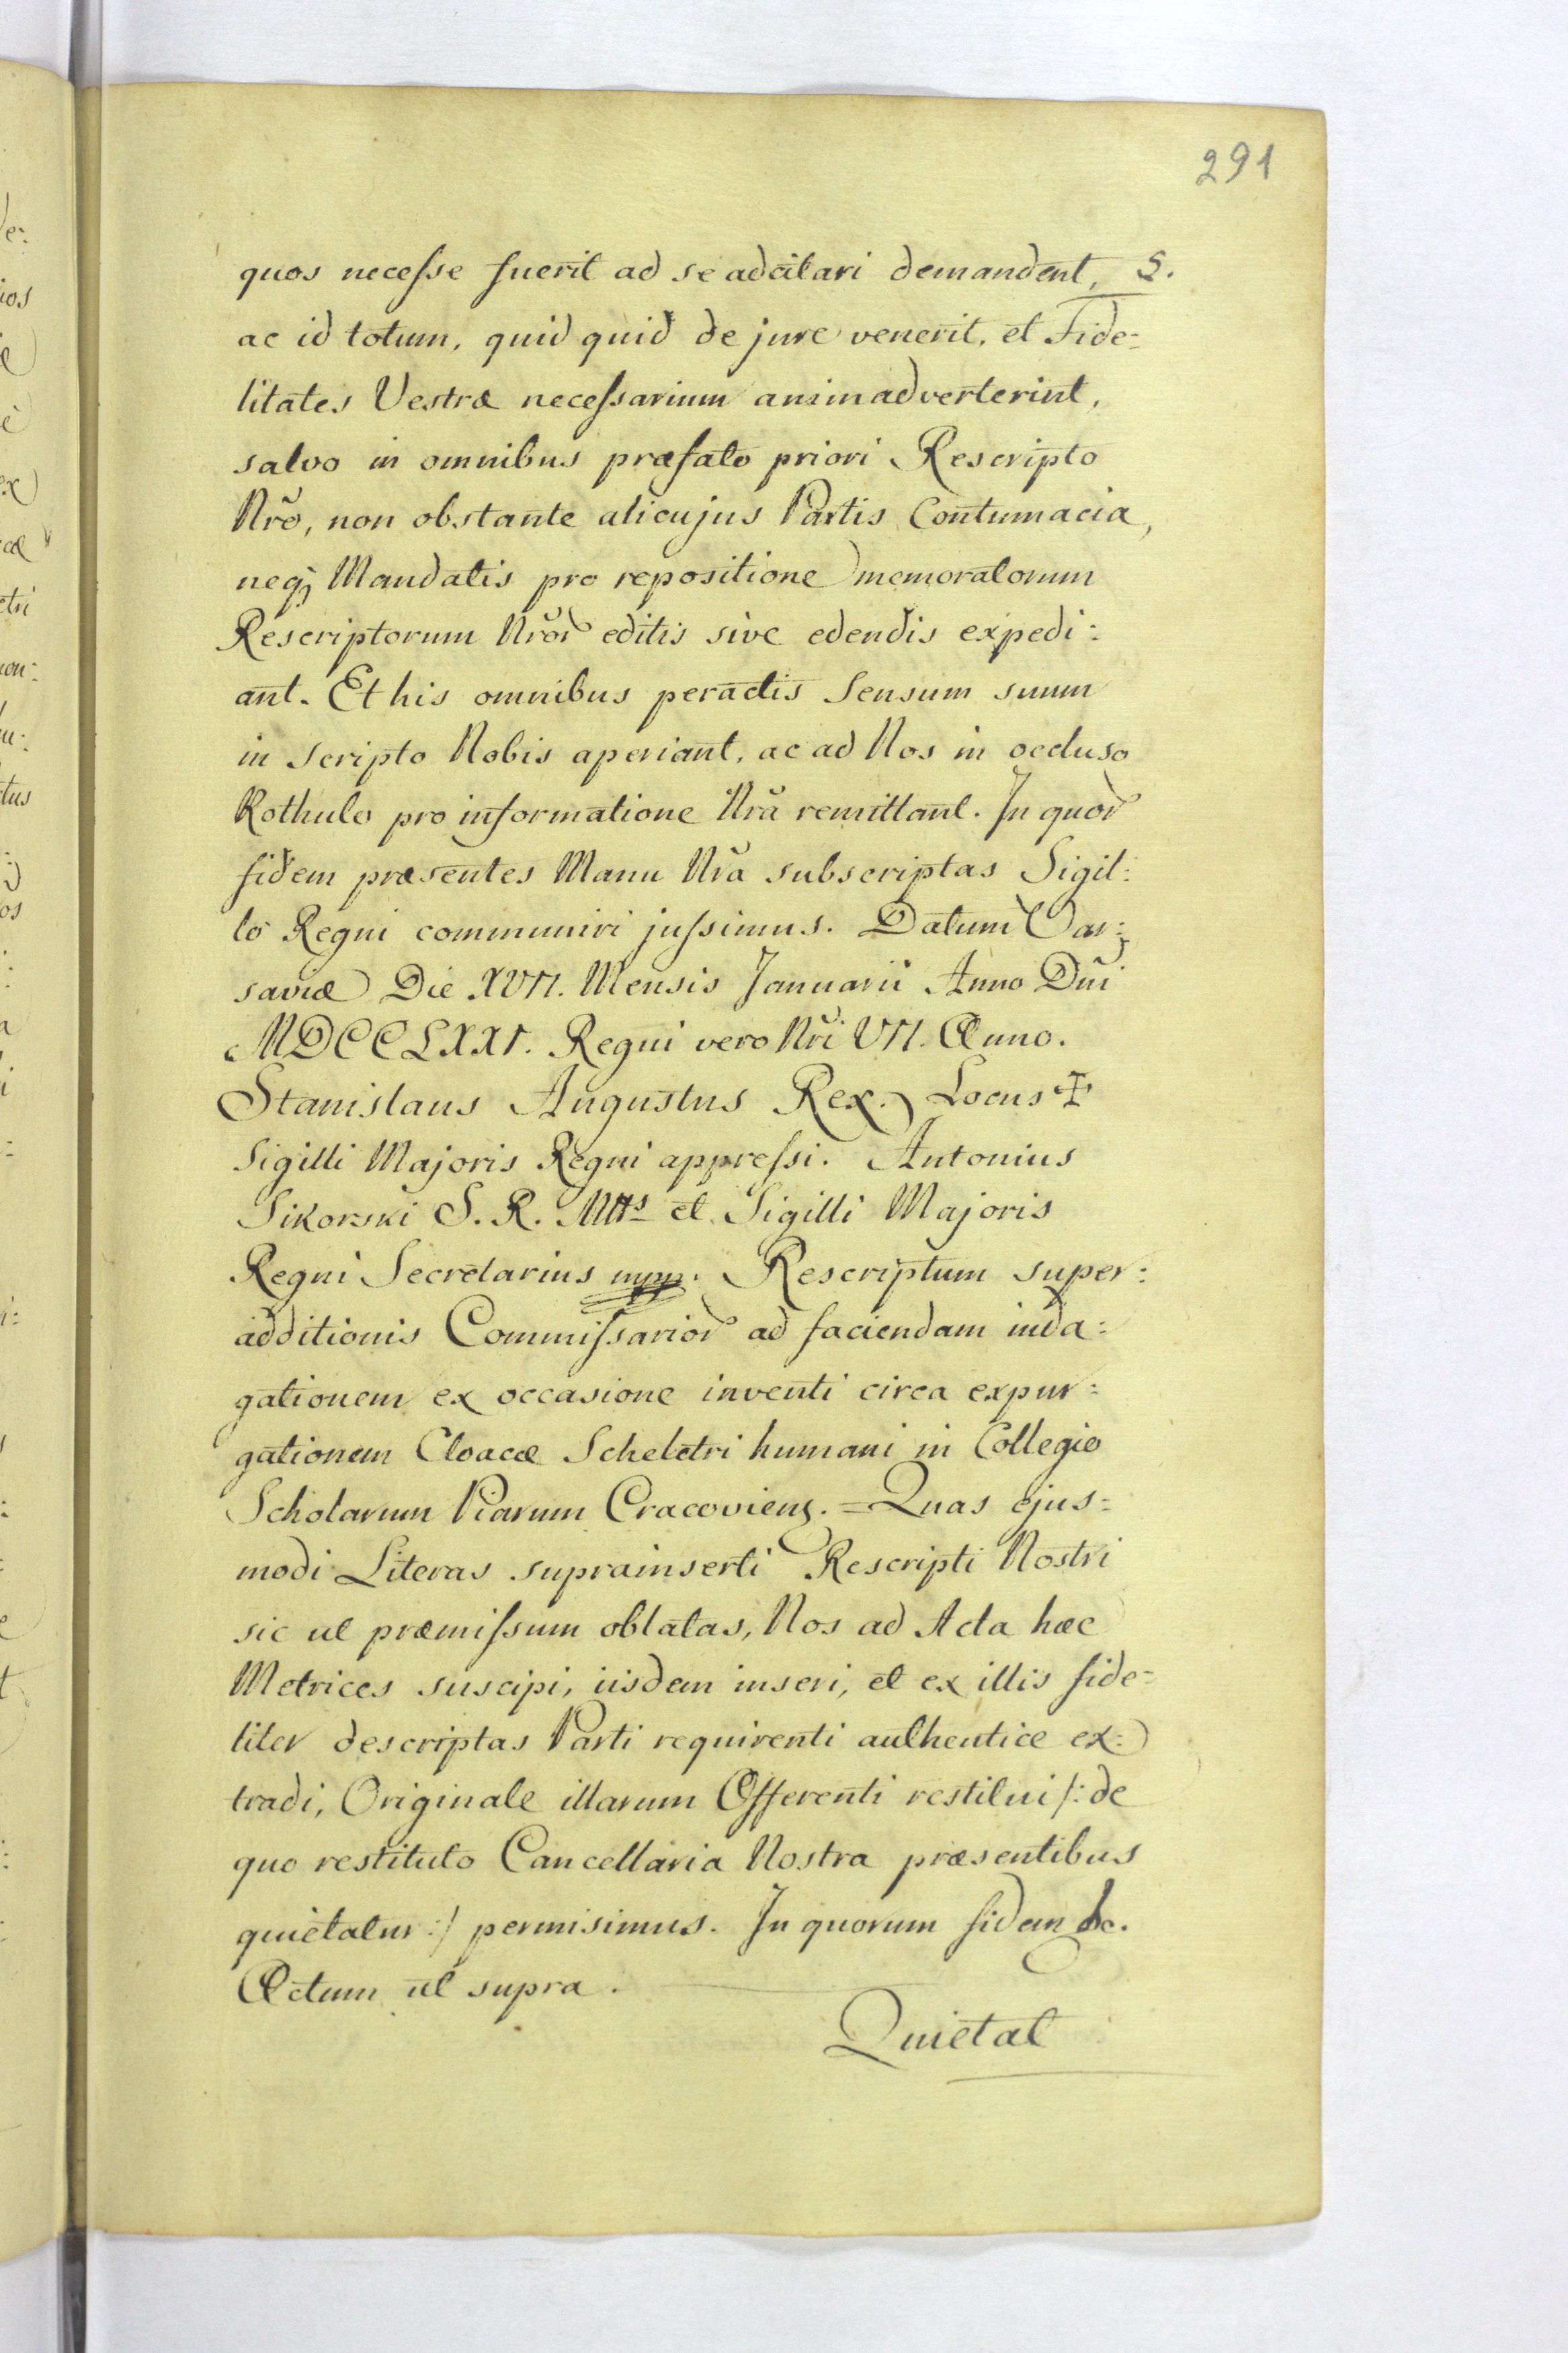 291
quos necesse fuerit ad se adcitari demandent, S.
ac id totum, quid quid de jure venerit, et Fide=
litates Vestræ necessarium animadverterint,
salvo in omnibus præfato priori Rescripto
Nrõ, non obstante alicujus Partis Contumacia,
neqꝫ Mandatis pro repositione memoratorum
Rescriptorum Nror̃ editis sive edendis expedi=
ant. Et his omnibus peractis Sensum suum
in Scripto Nobis aperiant, ac ad Nos in occluso
Rothulo pro informatione Nrã remittant. In quor̃
fidem præsentes Manu Nrã subscriptas Sigil=
lo Regni communiri jussimus. Datum Var=
saviæ Die XVII. Mensis Januarii Anno Dñi
MDCCLXXI. Regni vero Nrĩ VII. Anno.
Stanislaus Augustus Rex. Locus ✝
Sigilli Majoris Regni appressi. Antonius
Sikorski S. R. Mtts et Sigilli Majoris
Regni Secretarius mpp. Rescriptum super=
additionis Commissarior̃ ad faciendam inda=
gationem ex occasione inventi circa expur=
gationem Cloacæ Scheletri humani in Collegio
Scholarum Piarum Cracoviens. = Quas ejus=
modi Literas suprainserti Rescripti Nostri
sic ut præmissum oblatas, Nos ad Acta hæc
Metrices suscipi, iisdem inseri, et ex illis fide=
liter descriptas Parti requirenti authentice ex=
tradi, Originale illarum Offerenti restitui /: de
quo restituto Cancellaria Nostra præsentibus
quietatur :/ permisimus. In quorum fidem &c.
Actum ut supra.
Quietat